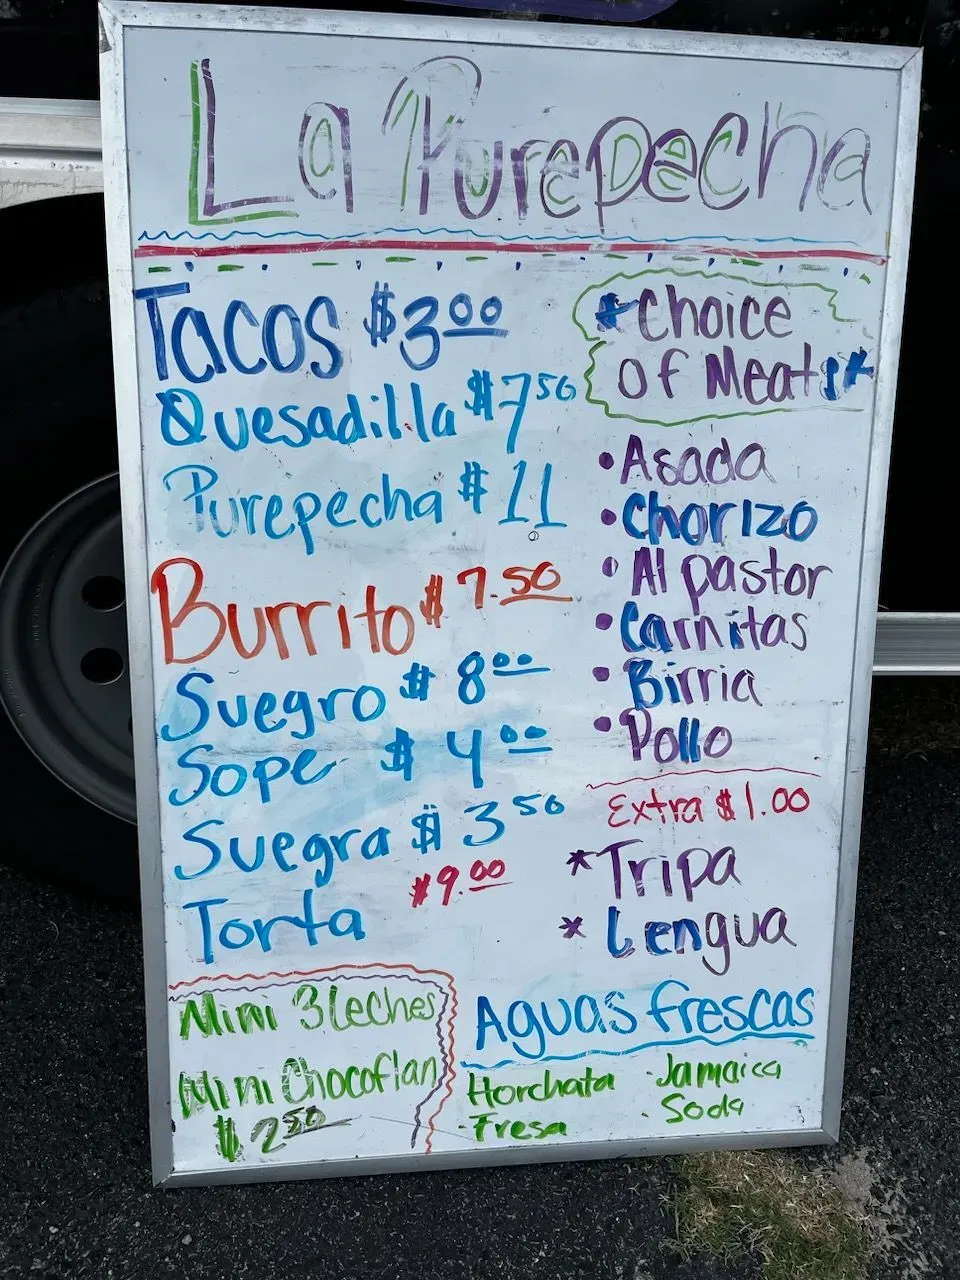 La Purepecha
Tacos $3.00
Quesadilla $7.50
Purepecha $11
Burrito $7.50
Suegro $8.00
Sope $4.00
Suegra $3.50
$9.00
Torta
*Choice
of Meats*
• Asada
• Chorizo
• Al pastor
• Carnitas
• Birria
• Pollo
Extra $1.00
* Tripa
* Lengua
Mini 3 leches
Mini Chocoflan
$2.50
Aguas frescas
Horchata · Jamaica
· Fresa · Soda